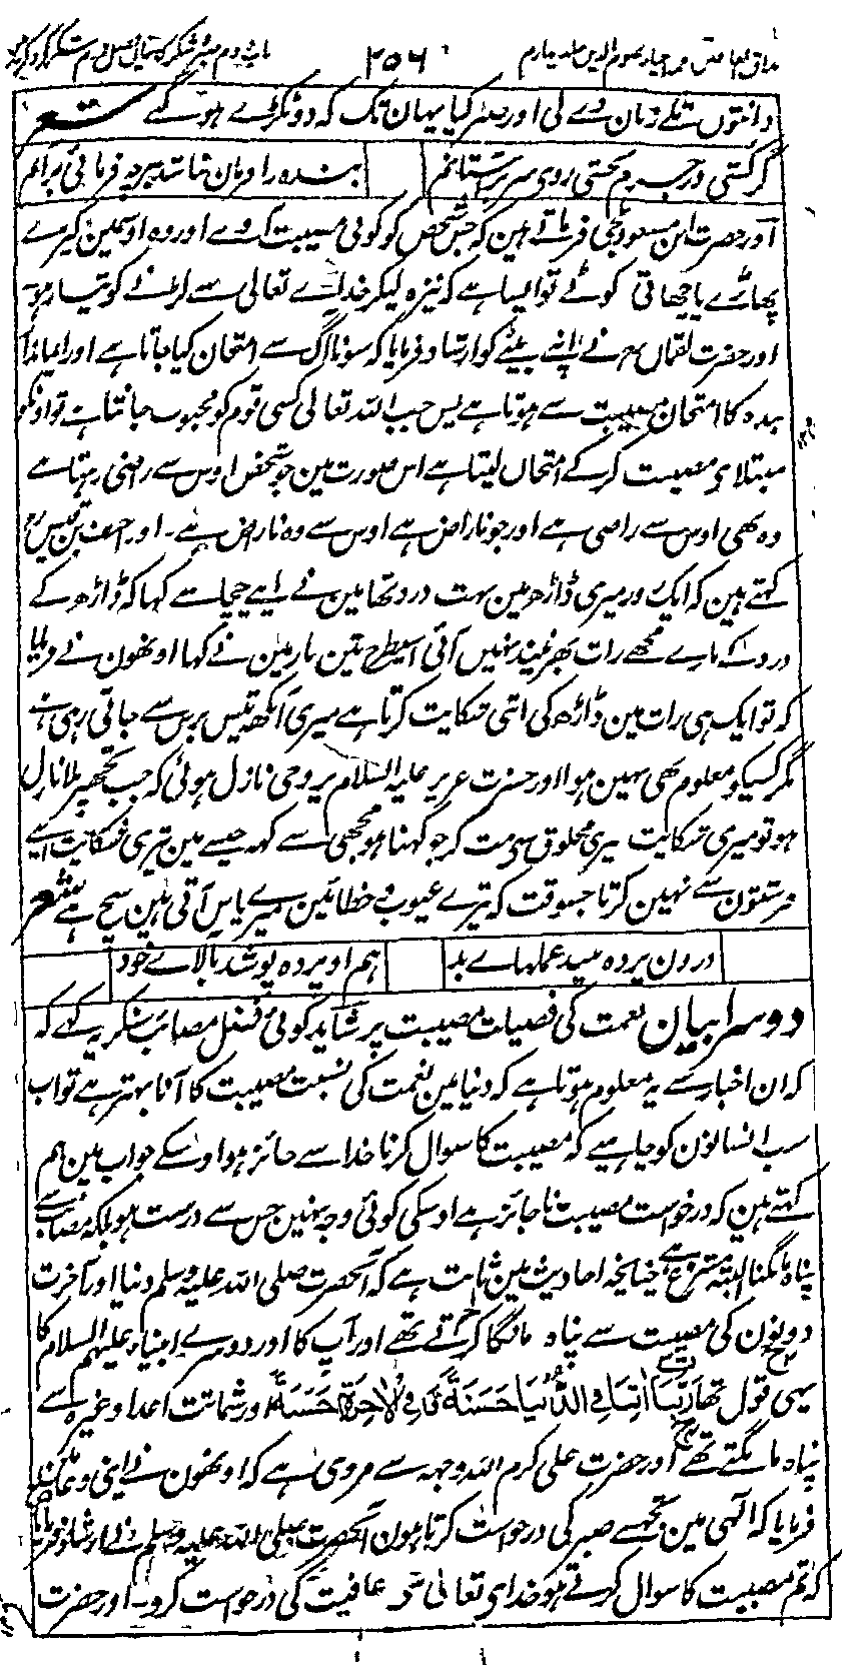 مذاق العارفین ترجمہ احیاء علوم الدین جلد چہارم ۲۵۶ باب دوم صبر و شکر کے بیان فصل دوم شکر کے ذکر میں
دانتوں تلے زبان دے لی اور صبر کیا یہان تک کہ دو ٹکڑے ہو گئے شعر
گر کشی ور جرم بخشی روی و سر بر آستانم بندہ را فرمان نباشد ہر چہ فرمائی برانم
اور حضرت ابن مسعود رضی فرماتے ہین کہ جس شخص کو کوئی مصیبت آوے اور وہ اوسمین کپڑے
پھاڑے یا چھاتی کوٹے تو ایسا ہے کہ نیزہ لیکر خداے تعالی سے لڑنے کو تیار ہو
اور حضرت لقمان ع نے اپنے بیٹے کو ارشاد فرمایا کہ سونا آگ سے امتحان کیا جاتا ہے اور ایماندار
بندہ کا امتحان مصیبت سے ہوتا ہے پس جب اللہ تعالی کسی قوم کو محبوب جانتا ہے تو اونکو
مبتلاے مصیبت کر کے امتحان لیتا ہے اس صورت مین جو شخص اوس سے راضی رہتا ہے
وہ بھی اوس سے راضی ہے اور جو ناراض ہے اوس سے وہ ناراض ہے۔ اور احنف بن قیس رح
کہتے ہین کہ ایک روز میری ڈاڑھ مین بہت درد تھا مین نے اپنے چچا سے کہا کہ ڈاڑھ کے
درد کے مارے مجھے رات بھر نیند نہیں آئی اسیطرح تین بار مین نے کہا اونھون نے فرمایا
کہ تو ایک ہی رات مین ڈاڑھ کی اتنی شکایت کرتا ہے میری آنکھ تیس برس سے جاتی رہی ہے
مگر کسیکو معلوم بھی نہین ہوا اور حضرت عزیر علیہ السلام پر وحی نازل ہوئی کہ جب تجھپر بلا نازل
ہو تو میری شکایت میری مخلوق سے مت کر جو کہنا ہو مجھی سے کہہ جیسے مین تیری شکایت اپنے
فرشتون سے نہین کرتا جسوقت کہ تیرے عیوب و خطائین میرے پاس آتی ہین سچ ہے شعر
درون پردہ بیند عملہاے بد ہم او پردہ پوشد بالاے خود
دوسرا بیان نعمت کی فضیلت مصیبت پر شاید کوئی فضل مصائب سنکر یہ کہے کہ
کہ ان اخبار سے یہ معلوم ہوتا ہے کہ دنیا مین نعمت کی نسبت مصیبت کا آنا بہتر ہے تو اب
سب انسانون کو چاہیے کہ مصیبت کا سوال کرنا خدا سے جائز ہو اوسکے جواب مین ہم
کہتے ہین کہ درخواست مصیبت ناجائز ہے اوسکی کوئی وجہ نہین جس سے درست ہو بلکہ مصائب سے
پناہ مانگنا البتہ مشروع ہے چنانچہ احادیث مین ثابت ہے کہ آنحضرت صلی اللہ علیہ وسلم دنیا اور آخرت
دونون کی مصیبت سے پناہ مانگا کرتے تھے اور آپ کا اور دوسرے انبیاء علیہم السلام کا
یہی قول تھا رَبَّنَا اٰتِنَا فِی الدُّنْیَا حَسَنَةً وَّ فِی الْاٰخِرَةِ حَسَنَةً اور شماتت اعدا وغیرہ سے
پناہ مانگتے تھے اور حضرت علی کرم اللہ وجہہ سے مروی ہے کہ اونھون نے اپنی دعا مین
فرمایا کہ الٰہی مین تجھسے صبر کی درخواست کرتا ہون آنحضرت صلی اللہ علیہ وسلم نے ارشاد فرمایا
کہ تم مصیبت کا سوال کرتے ہو خداے تعالی سے عافیت کی درخواست کرو۔ اور حضرت